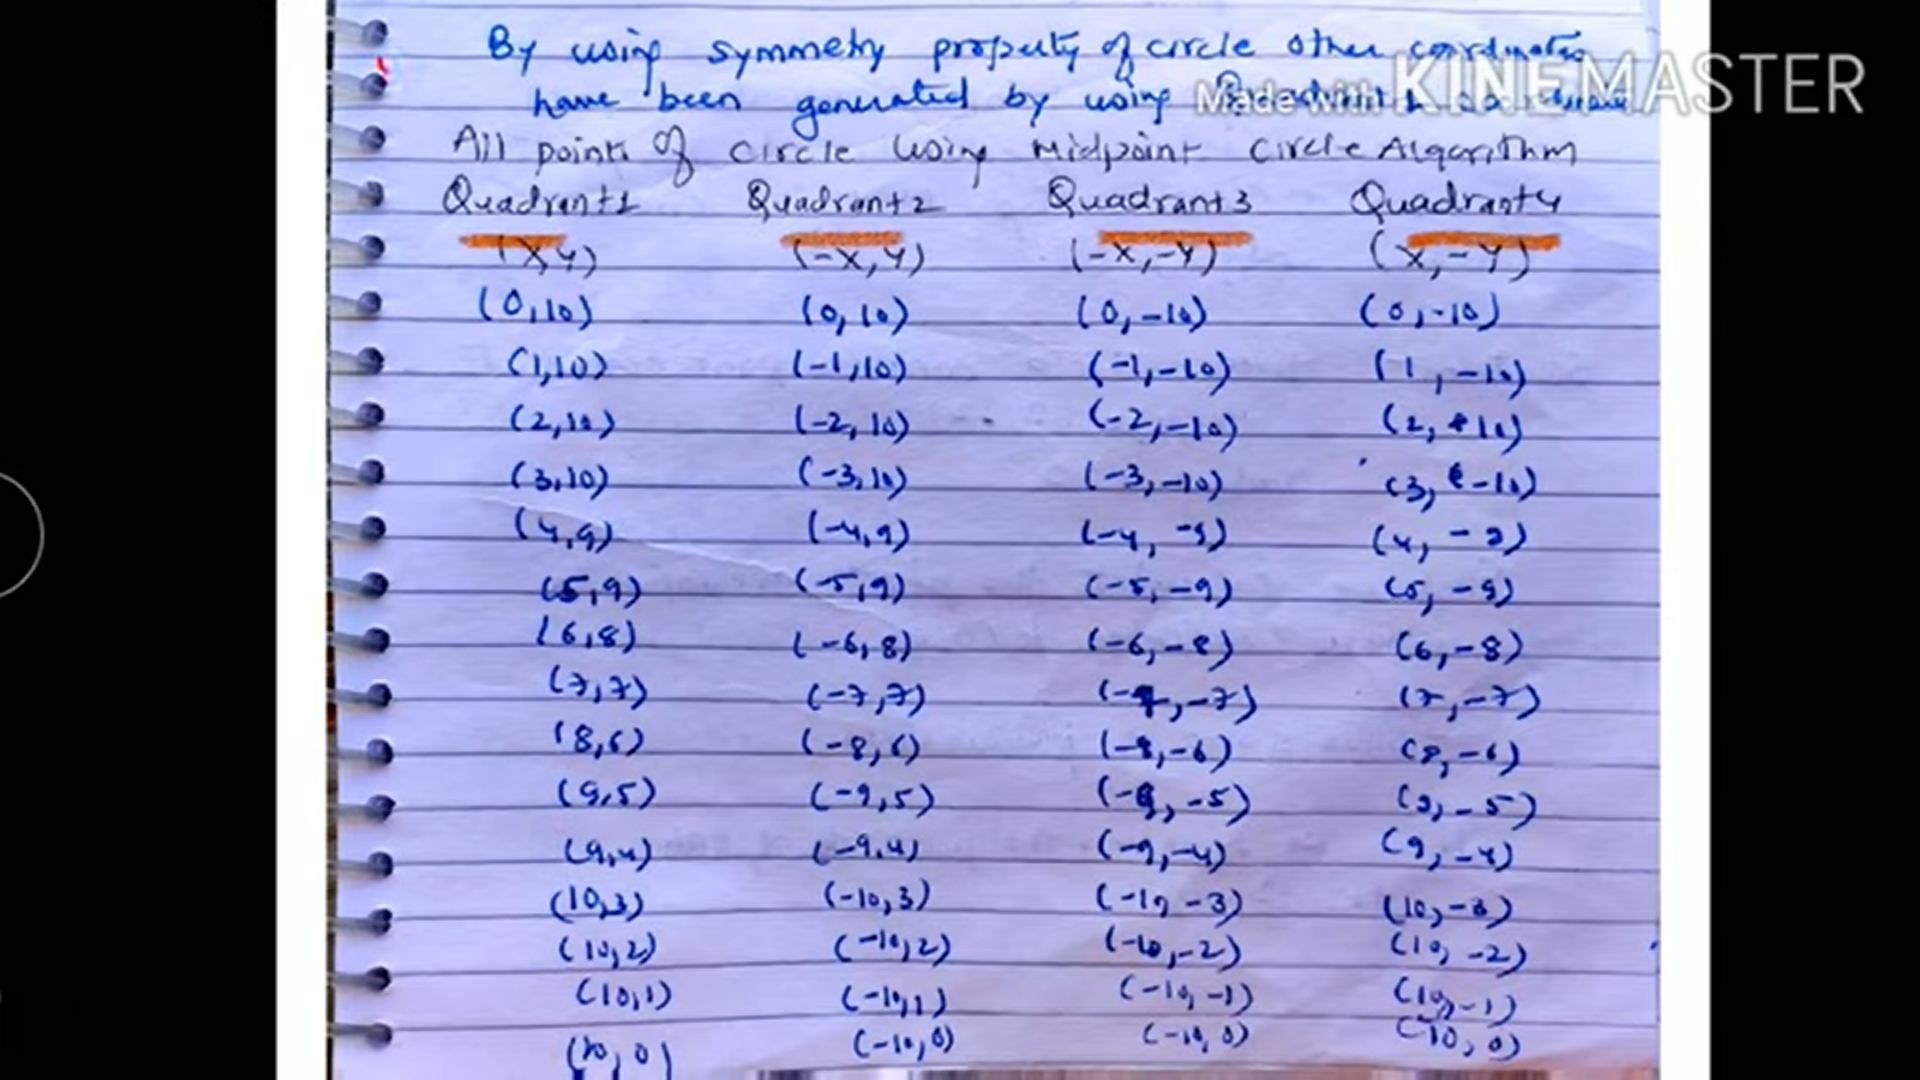 By using symmetry property of circle other coordinates
have been generated by using Quadrant 1 coordinate
Made with KINEMASTER
All points of circle using Midpoint circle Algorithm
Quadrant1 Quadrant2 Quadrant3 Quadrant4
(X,Y) (-X,Y) (-X,-Y) (X,-Y)
(0,10) (0,10) (0,-10) (0,-10)
(1,10) (-1,10) (-1,-10) (1,-10)
(2,10) (-2,10) (-2,-10) (2,-10)
(3,10) (-3,10) (-3,-10) (3,-10)
(4,9) (-4,9) (-4,-9) (4,-9)
(5,9) (-5,9) (-5,-9) (5,-9)
(6,8) (-6,8) (-6,-8) (6,-8)
(7,7) (-7,7) (-7,-7) (7,-7)
(8,6) (-8,6) (-8,-6) (8,-6)
(9,5) (-9,5) (-9,-5) (9,-5)
(9,4) (-9,4) (-9,-4) (9,-4)
(10,3) (-10,3) (-10,-3) (10,-3)
(10,2) (-10,2) (-10,-2) (10,-2)
(10,1) (-10,1) (-10,-1) (10,-1)
(10,0) (-10,0) (-10,0) (10,0)